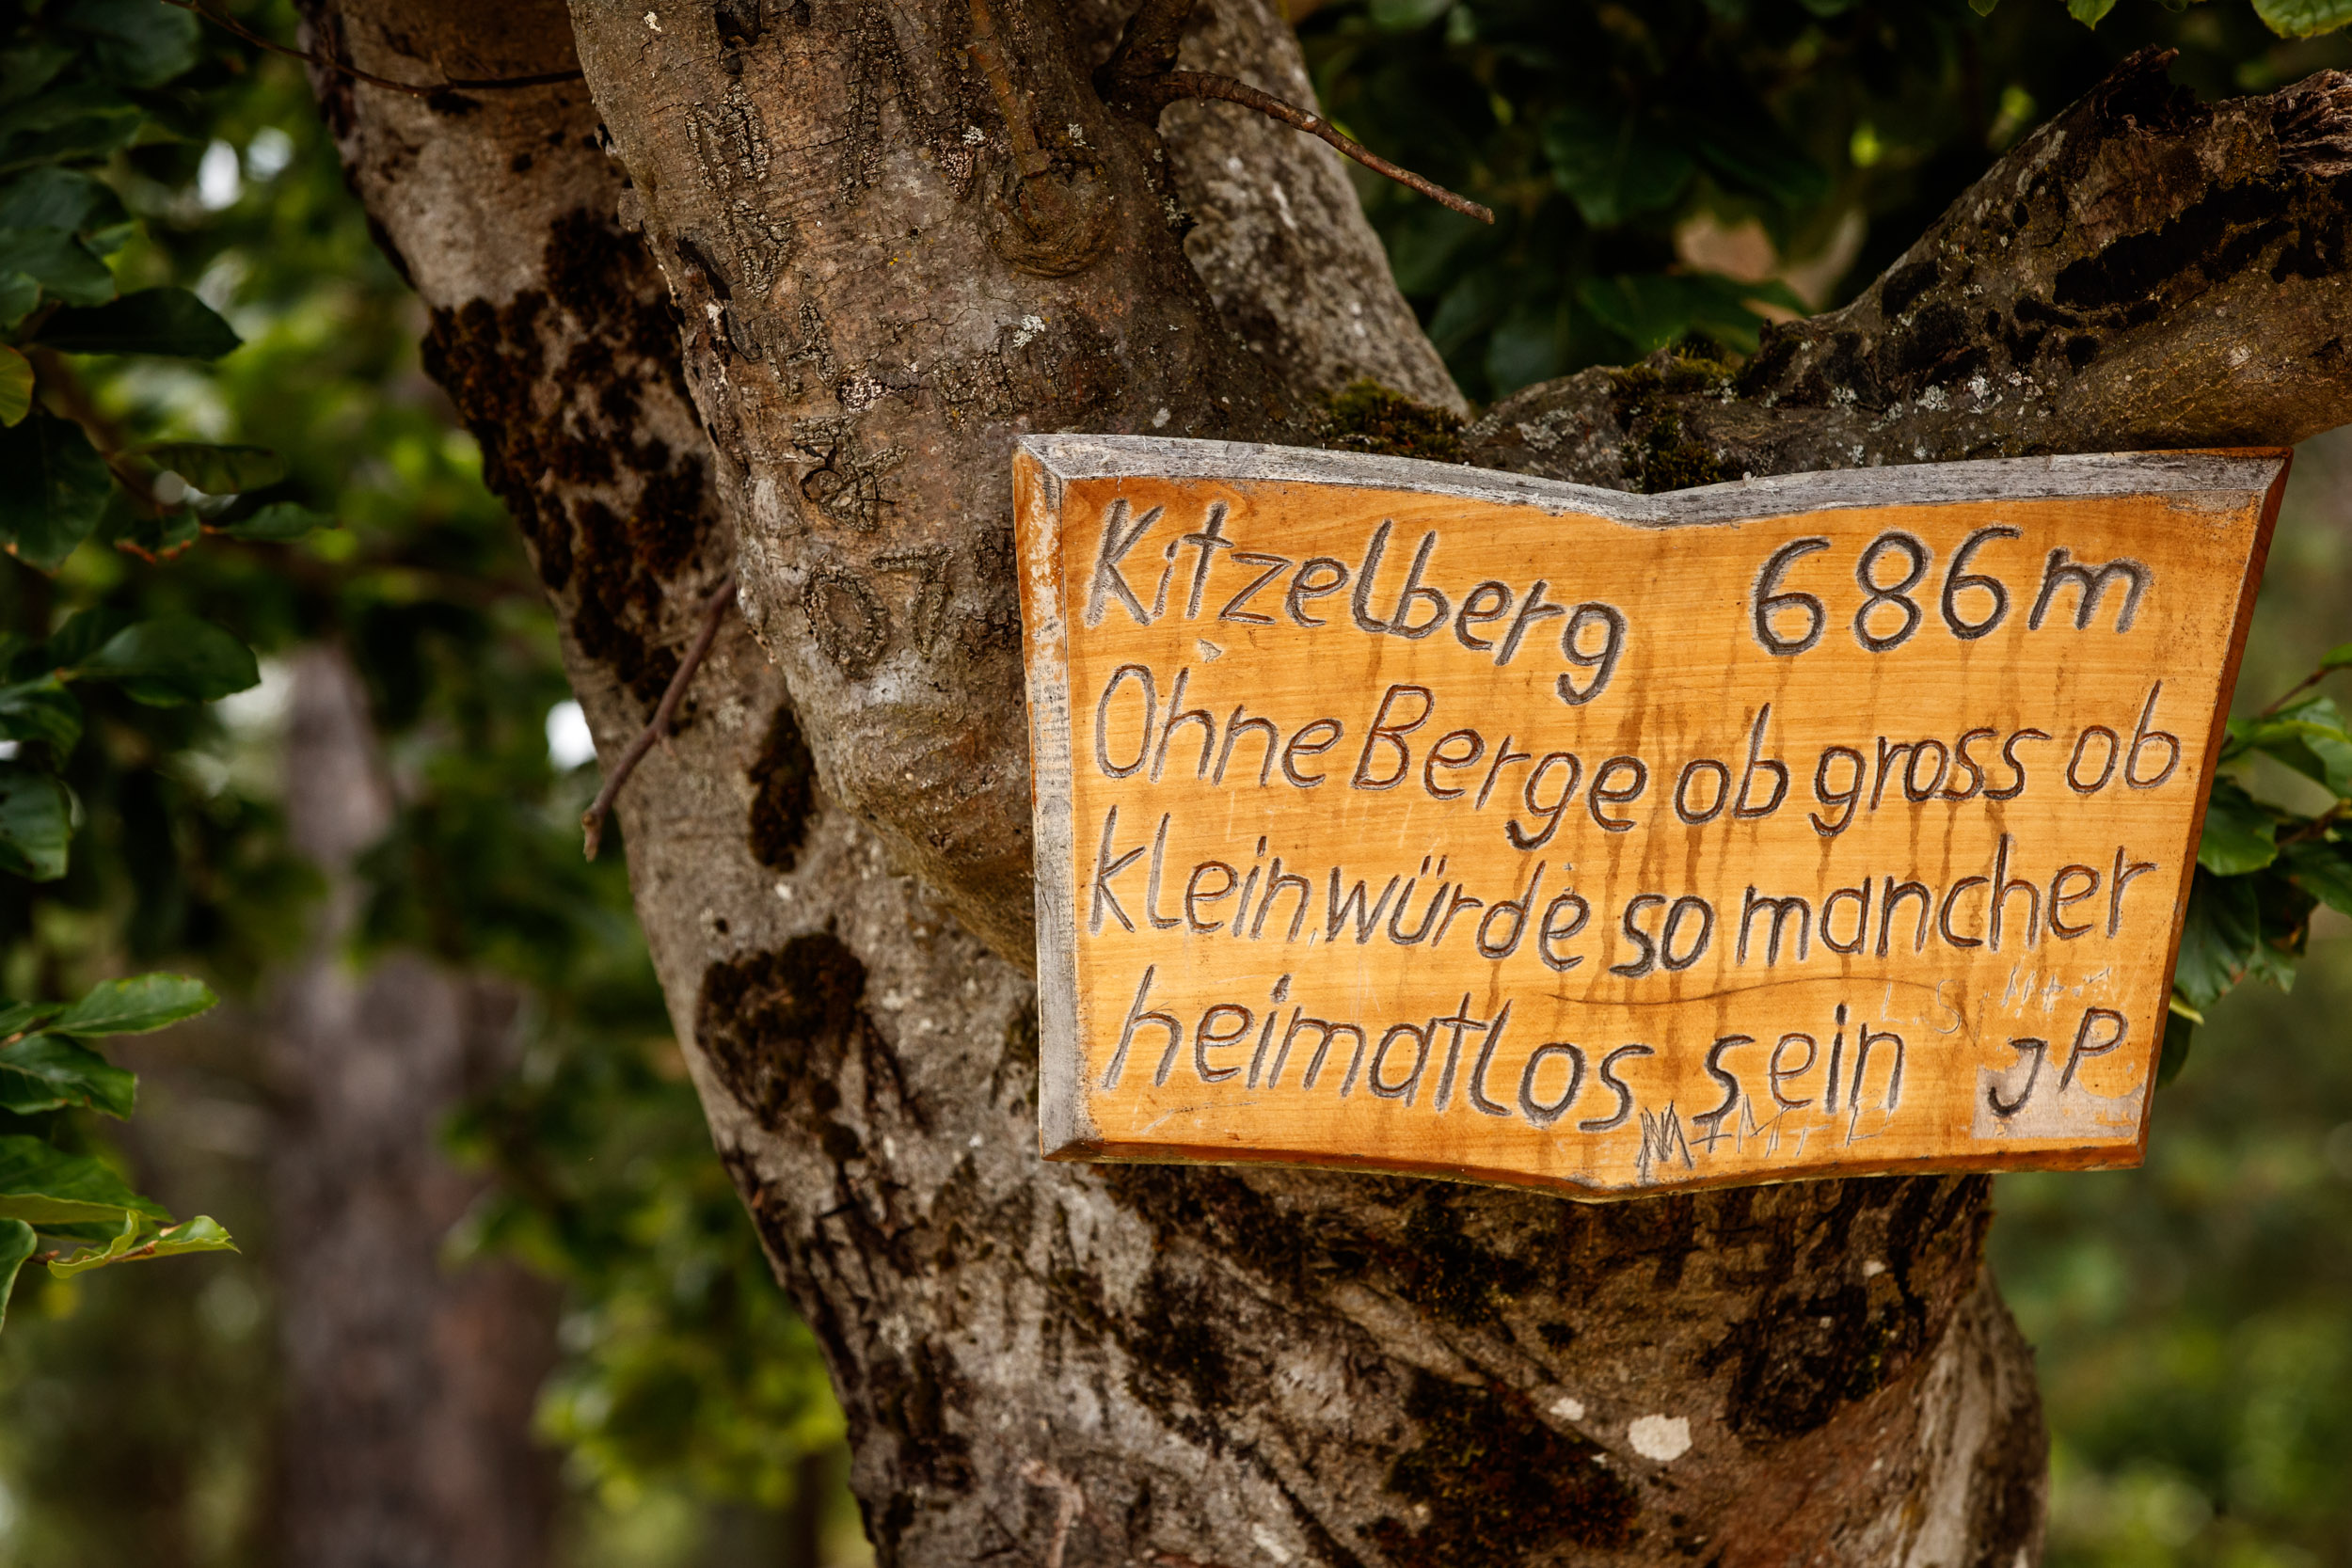 07
Kitzelberg 686m
Ohne Berge ob gross ob
klein, würde so mancher
heimatlos sein JP